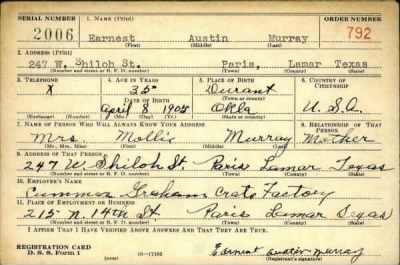 SERIAL NUMBER 1. NAME (Print) ORDER NUMBER
2006 Earnest Austin Murray 792
(First) (Middle) (Last)
2. ADDRESS (Print)
247 W. Shiloh St. Paris, Lamar Texas
(Number and street or R. F. D. number) (Town) (County) (State)
3. TELEPHONE 4. AGE IN YEARS 5. PLACE OF BIRTH 6. COUNTRY OF CITIZENSHIP
X 35 Durant
DATE OF BIRTH (Town or county)
April 8 1905 Okla U.S.A.
(Exchange) (Number) (Mo.) (Day) (Yr.) (State or country)
7. NAME OF PERSON WHO WILL ALWAYS KNOW YOUR ADDRESS 8. RELATIONSHIP OF THAT PERSON
Mrs. Mollie Murray Mother
(Mr., Mrs., Miss) (First) (Middle) (Last)
9. ADDRESS OF THAT PERSON
247 W Shiloh St Paris Lamar Texas
(Number and street or R. F. D. number) (Town) (County) (State)
10. EMPLOYER'S NAME
Graham Crate Factory
11. PLACE OF EMPLOYMENT OR BUSINESS
215 N. 14th St Paris Lamar Texas
(Number and street or R. F. D. number) (Town) (County) (State)
I AFFIRM THAT I HAVE VERIFIED ABOVE ANSWERS AND THAT THEY ARE TRUE.
REGISTRATION CARD
D. S. S. Form 1 (over) 16—17105 Earnest Austin Murray
(Registrant's signature)